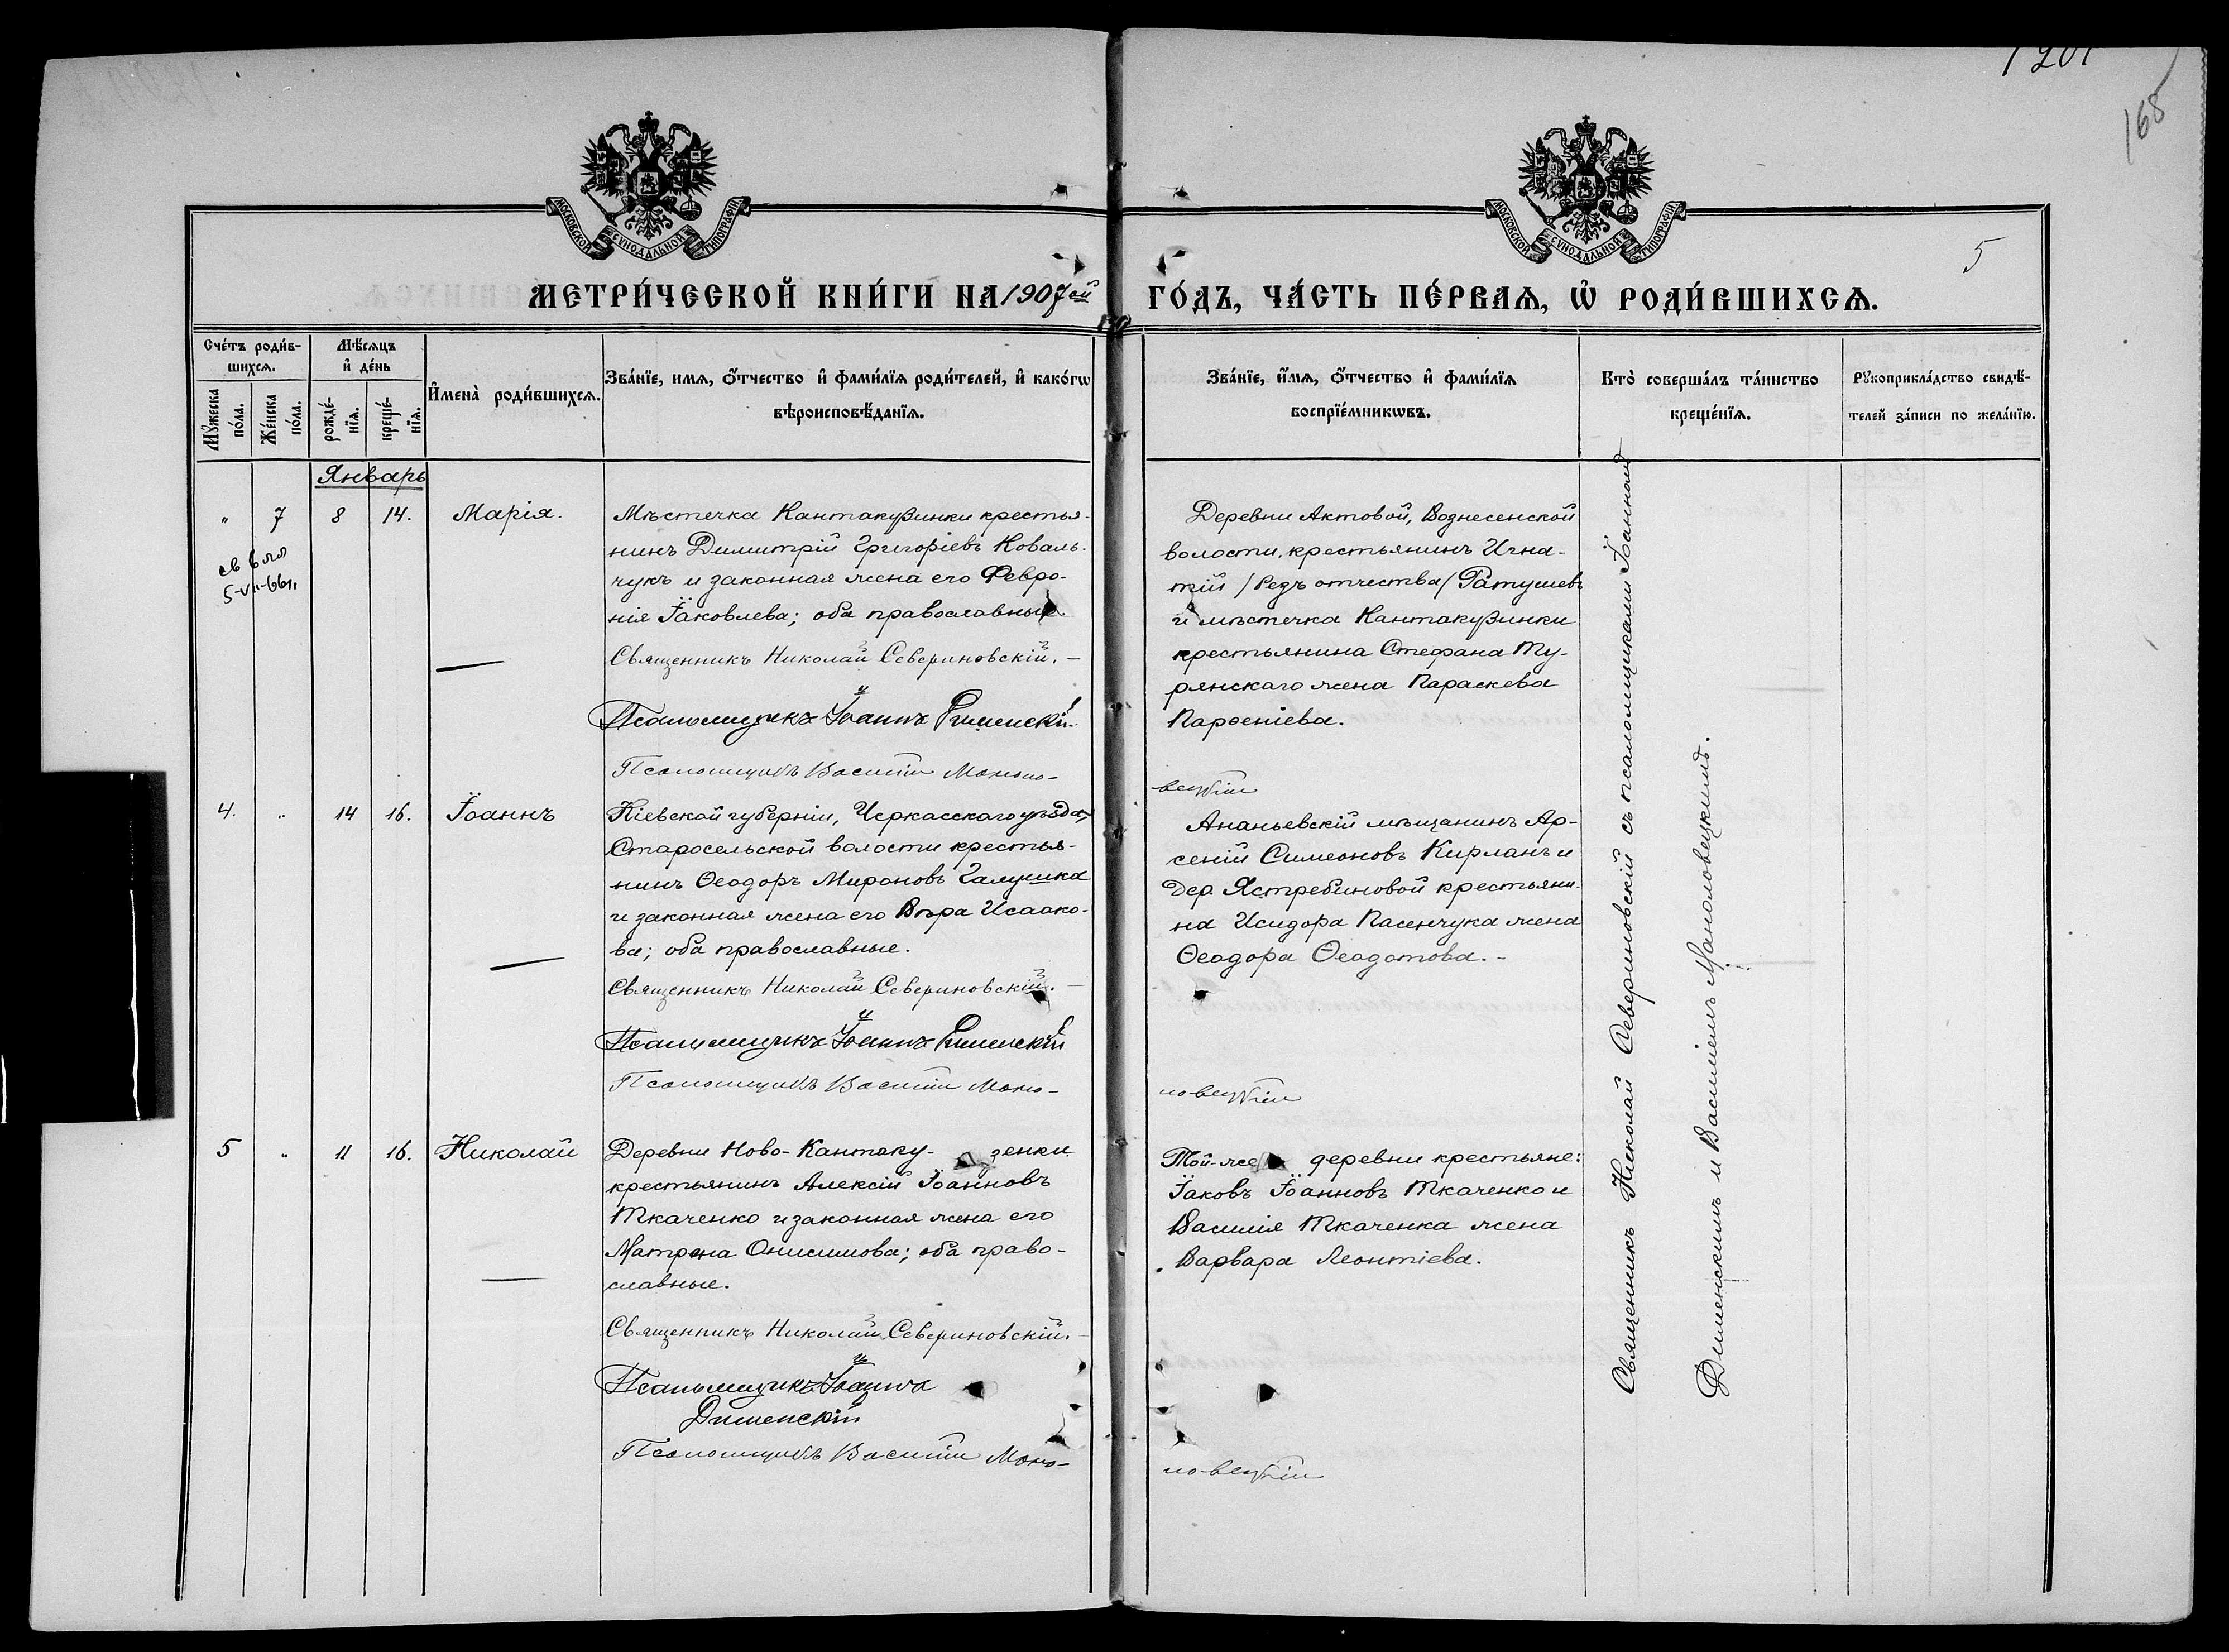 1201
168
МОСКОВСКОЙ СѴНОДАЛЬНОЙ ТИПОГРАФІИ
МОСКОВСКОЙ СѴНОДАЛЬНОЙ ТИПОГРАФІИ
5
МЕТРИ́ЧЕСКОЙ КНИ́ГИ НА 1907ой ГО́ДЪ, ЧА́СТЬ ПЕ́РВАѦ, Ѡ҆ РОДИ́ВШИХСѦ.
Сче́тъ роди́в-
шихсѧ.
Мꙋ́жеска по́ла.
Же́нска по́ла.
Мѣ́сѧцъ
и҆ де́нь
рожде́-
нїѧ.
креще́-
нїѧ.
И҆мена̀ роди́вшихсѧ.
Зва́нїе, имѧ, ѻ҆́тчество и҆ фами́лїѧ роди́телей, и҆ како́гѡ
вѣроисповѣ́данїѧ.
Зва́нїе, и҆́мѧ, ѻ҆́тчество и҆ фами́лїѧ
воспрїе́мникѡвъ.
Кто̀ соверша́лъ та́инство
креще́нїѧ.
Рꙋкоприкла́дство свидѣ́-
телей за́писи по жела́нїю.
Январь
„ 7 8 14. Марія.
Мѣстечка Кантакузинки крестья-
нинъ Димитрій Григоріевъ Коваль-
чукъ и законная жена его Февро-
нія Іаковлева; оба православные.
Священникъ Николай Севериновскій. —
Псаломщикъ Іоаннъ Дименскій
Псаломщикъ Василій Маноло-
вецкій
Деревни Актовой, Вознесенской
волости, крестьянинъ Игна-
тій /безъ отчества/ Ратушевъ
и мѣстечка Кантакузинки
крестьянина Стефана Ту-
рянскаго жена Параскева
Парѳеніева.
4. „ 14 16. Іоаннъ
Кіевской губерніи, Черкасскаго уѣзда,
Старосельской волости крестья-
нинъ Ѳеодоръ Мироновъ Галушка
и законная жена его Вѣра Исаако-
ва; оба православные.
Священникъ Николай Севериновскій. —
Псаломщикъ Іоаннъ Дименскій
Псаломщикъ Василій Мано-
ловецкій
Ананьевскій мѣщанинъ Ар-
сеній Симеоновъ Кирланъ и
дер Ястребиновой крестьяни-
на Исидора Пасенчука жена
Ѳеодора Ѳеодотова. -
5 „ 11 16. Николай
Деревни Ново-Кантаку- зенки
крестьянинъ Алексій Іоанновъ
Ткаченко и законная жена его
Матрона Онисимова; оба право-
славные.
Священникъ Николай Севериновскій. -
Псаломщикъ Іоаннъ
Дименскій
Псаломщикъ Василій Мано-
ловецкій
Той-же деревни крестьяне:
Іаковъ Іоанновъ Ткаченко и
Василія Ткаченка жена
Варвара Леонтіева.
Священникъ Николай Севериновскій съ псаломщиками Іоанномъ
Дименскимъ и Василіемъ Маноловецкимъ.